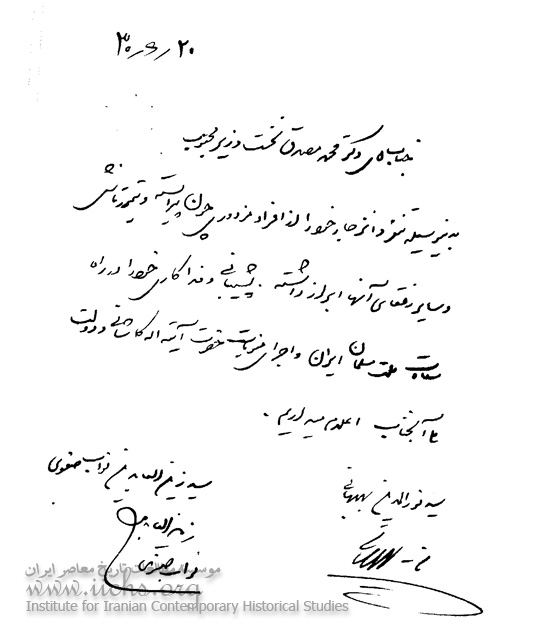 ۳۰٫۶٫۲۰
جناب آقای دکتر محمد مصدق نخست وزیر محبوب
بدینوسیله تنفر و انزجار خود را از افراد مزدوری چون پیراسته و تیمورتاش
و سایر رفقای آنها ابراز داشته پشتیبانی و فداکاری خود را در راه
سعادت ملت مسلمان ایران و اجرای منویات حضرت آیة اله کاشانی و دولت
آنجناب اعلام میداریم.
سید نورالدین بهبهانی
سید زین العابدین نواب صفوی
زین العابدین
نواب صفوی
موسسه مطالعات تاریخ معاصر ایران
www.iichs.org
Institute for Iranian Contemporary Historical Studies